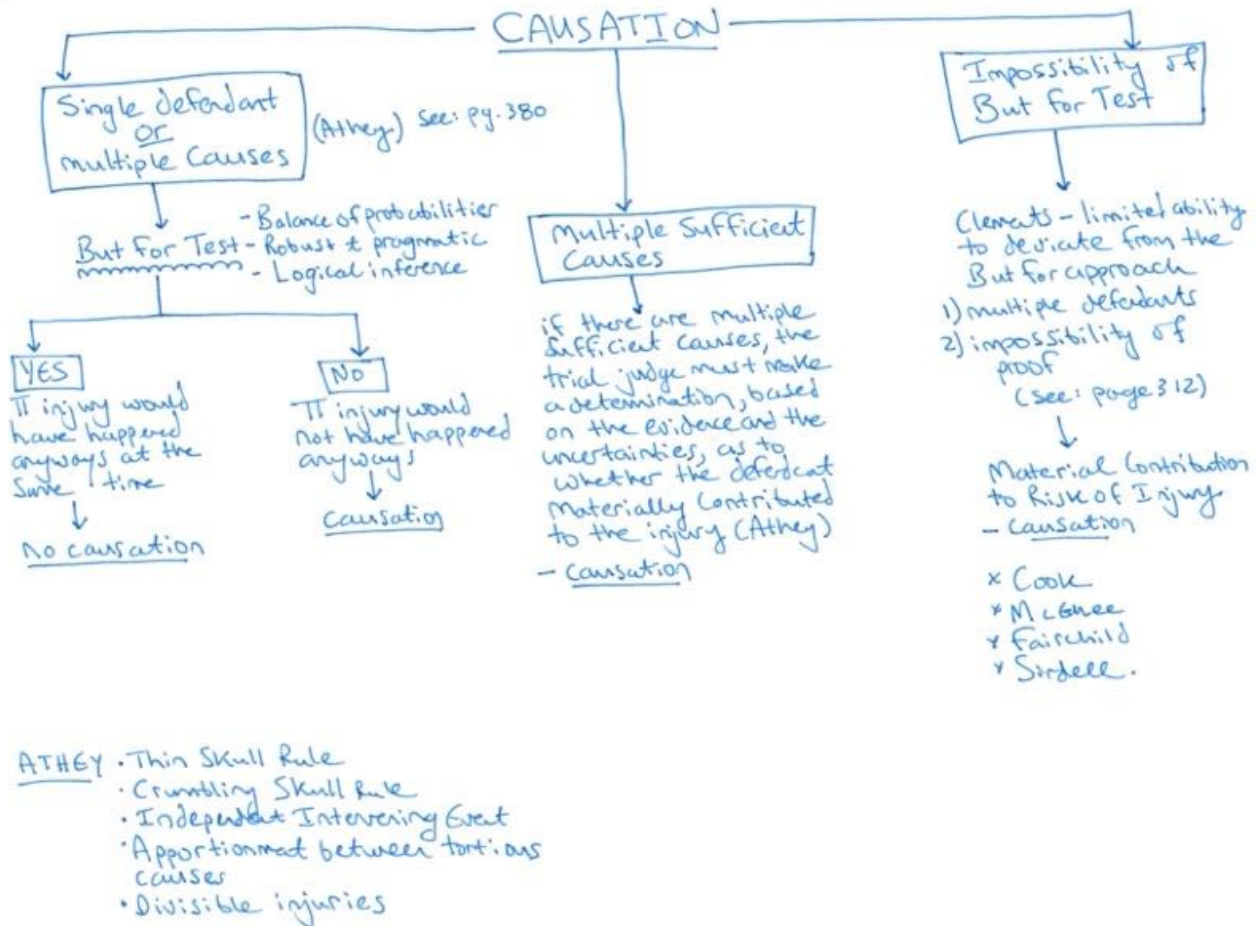 CAUSATION
Single defendant
or
multiple Causes
(Athey) see: pg. 380
But For Test
- Balance of probabilities
- Robust & pragmatic
- Logical inference
YES
π injury would
have happened
anyways at the
same time
no causation
NO
π injury would
not have happened
anyways
Causation
Multiple Sufficient
Causes
if there are multiple
sufficient causes, the
trial judge must make
a determination, based
on the evidence and the
uncertainties, as to
whether the defendant
materially contributed
to the injury (Athey)
- Causation
Impossibility of
But for Test
Clements - limited ability
to deviate from the
But for approach
1) multiple defendants
2) impossibility of
proof
(see: page 312)
Material Contribution
to Risk of Injury
- Causation
x Cook
x McGhee
x Fairchild
x Sindell.
ATHEY • Thin Skull Rule
• Crumbling Skull Rule
• Independent Intervening Event
• Apportionment between tortious
causes
• Divisible injuries